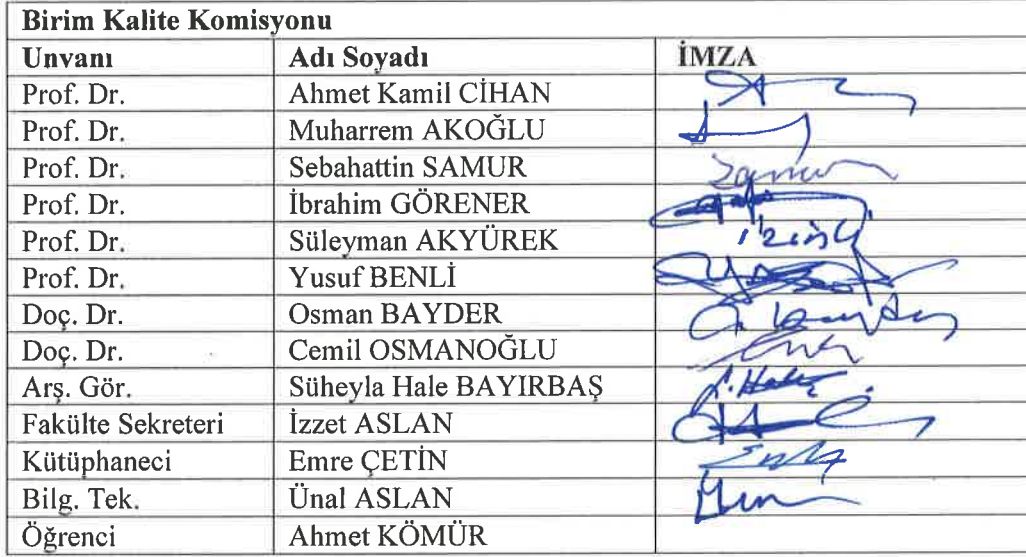 Birim Kalite Komisyonu
Unvanı Adı Soyadı İMZA
Prof. Dr. Ahmet Kamil CİHAN
Prof. Dr. Muharrem AKOĞLU
Prof. Dr. Sebahattin SAMUR
Prof. Dr. İbrahim GÖRENER
Prof. Dr. Süleyman AKYÜREK izinli
Prof. Dr. Yusuf BENLİ
Doç. Dr. Osman BAYDER
Doç. Dr. Cemil OSMANOĞLU
Arş. Gör. Süheyla Hale BAYIRBAŞ
Fakülte Sekreteri İzzet ASLAN
Kütüphaneci Emre ÇETİN
Bilg. Tek. Ünal ASLAN
Öğrenci Ahmet KÖMÜR